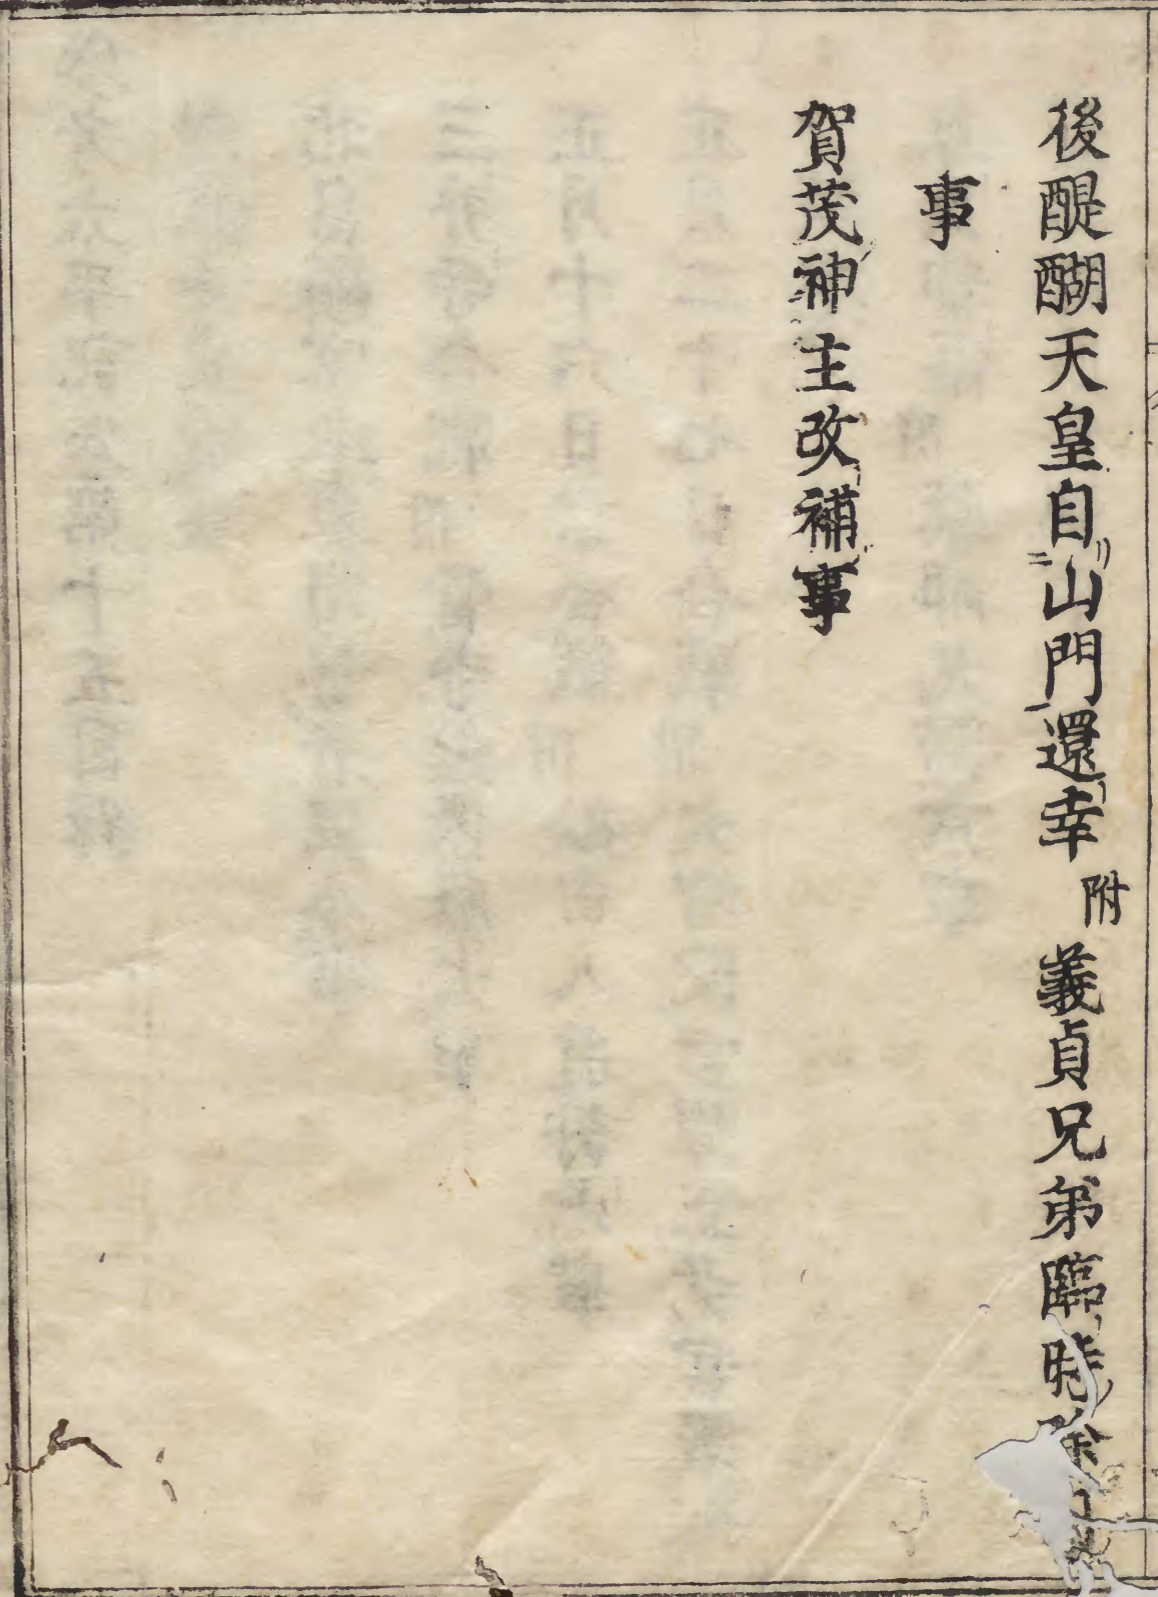 後醍醐天皇自山門還幸附義貞兄弟臨時除
事
賀茂神主改補事